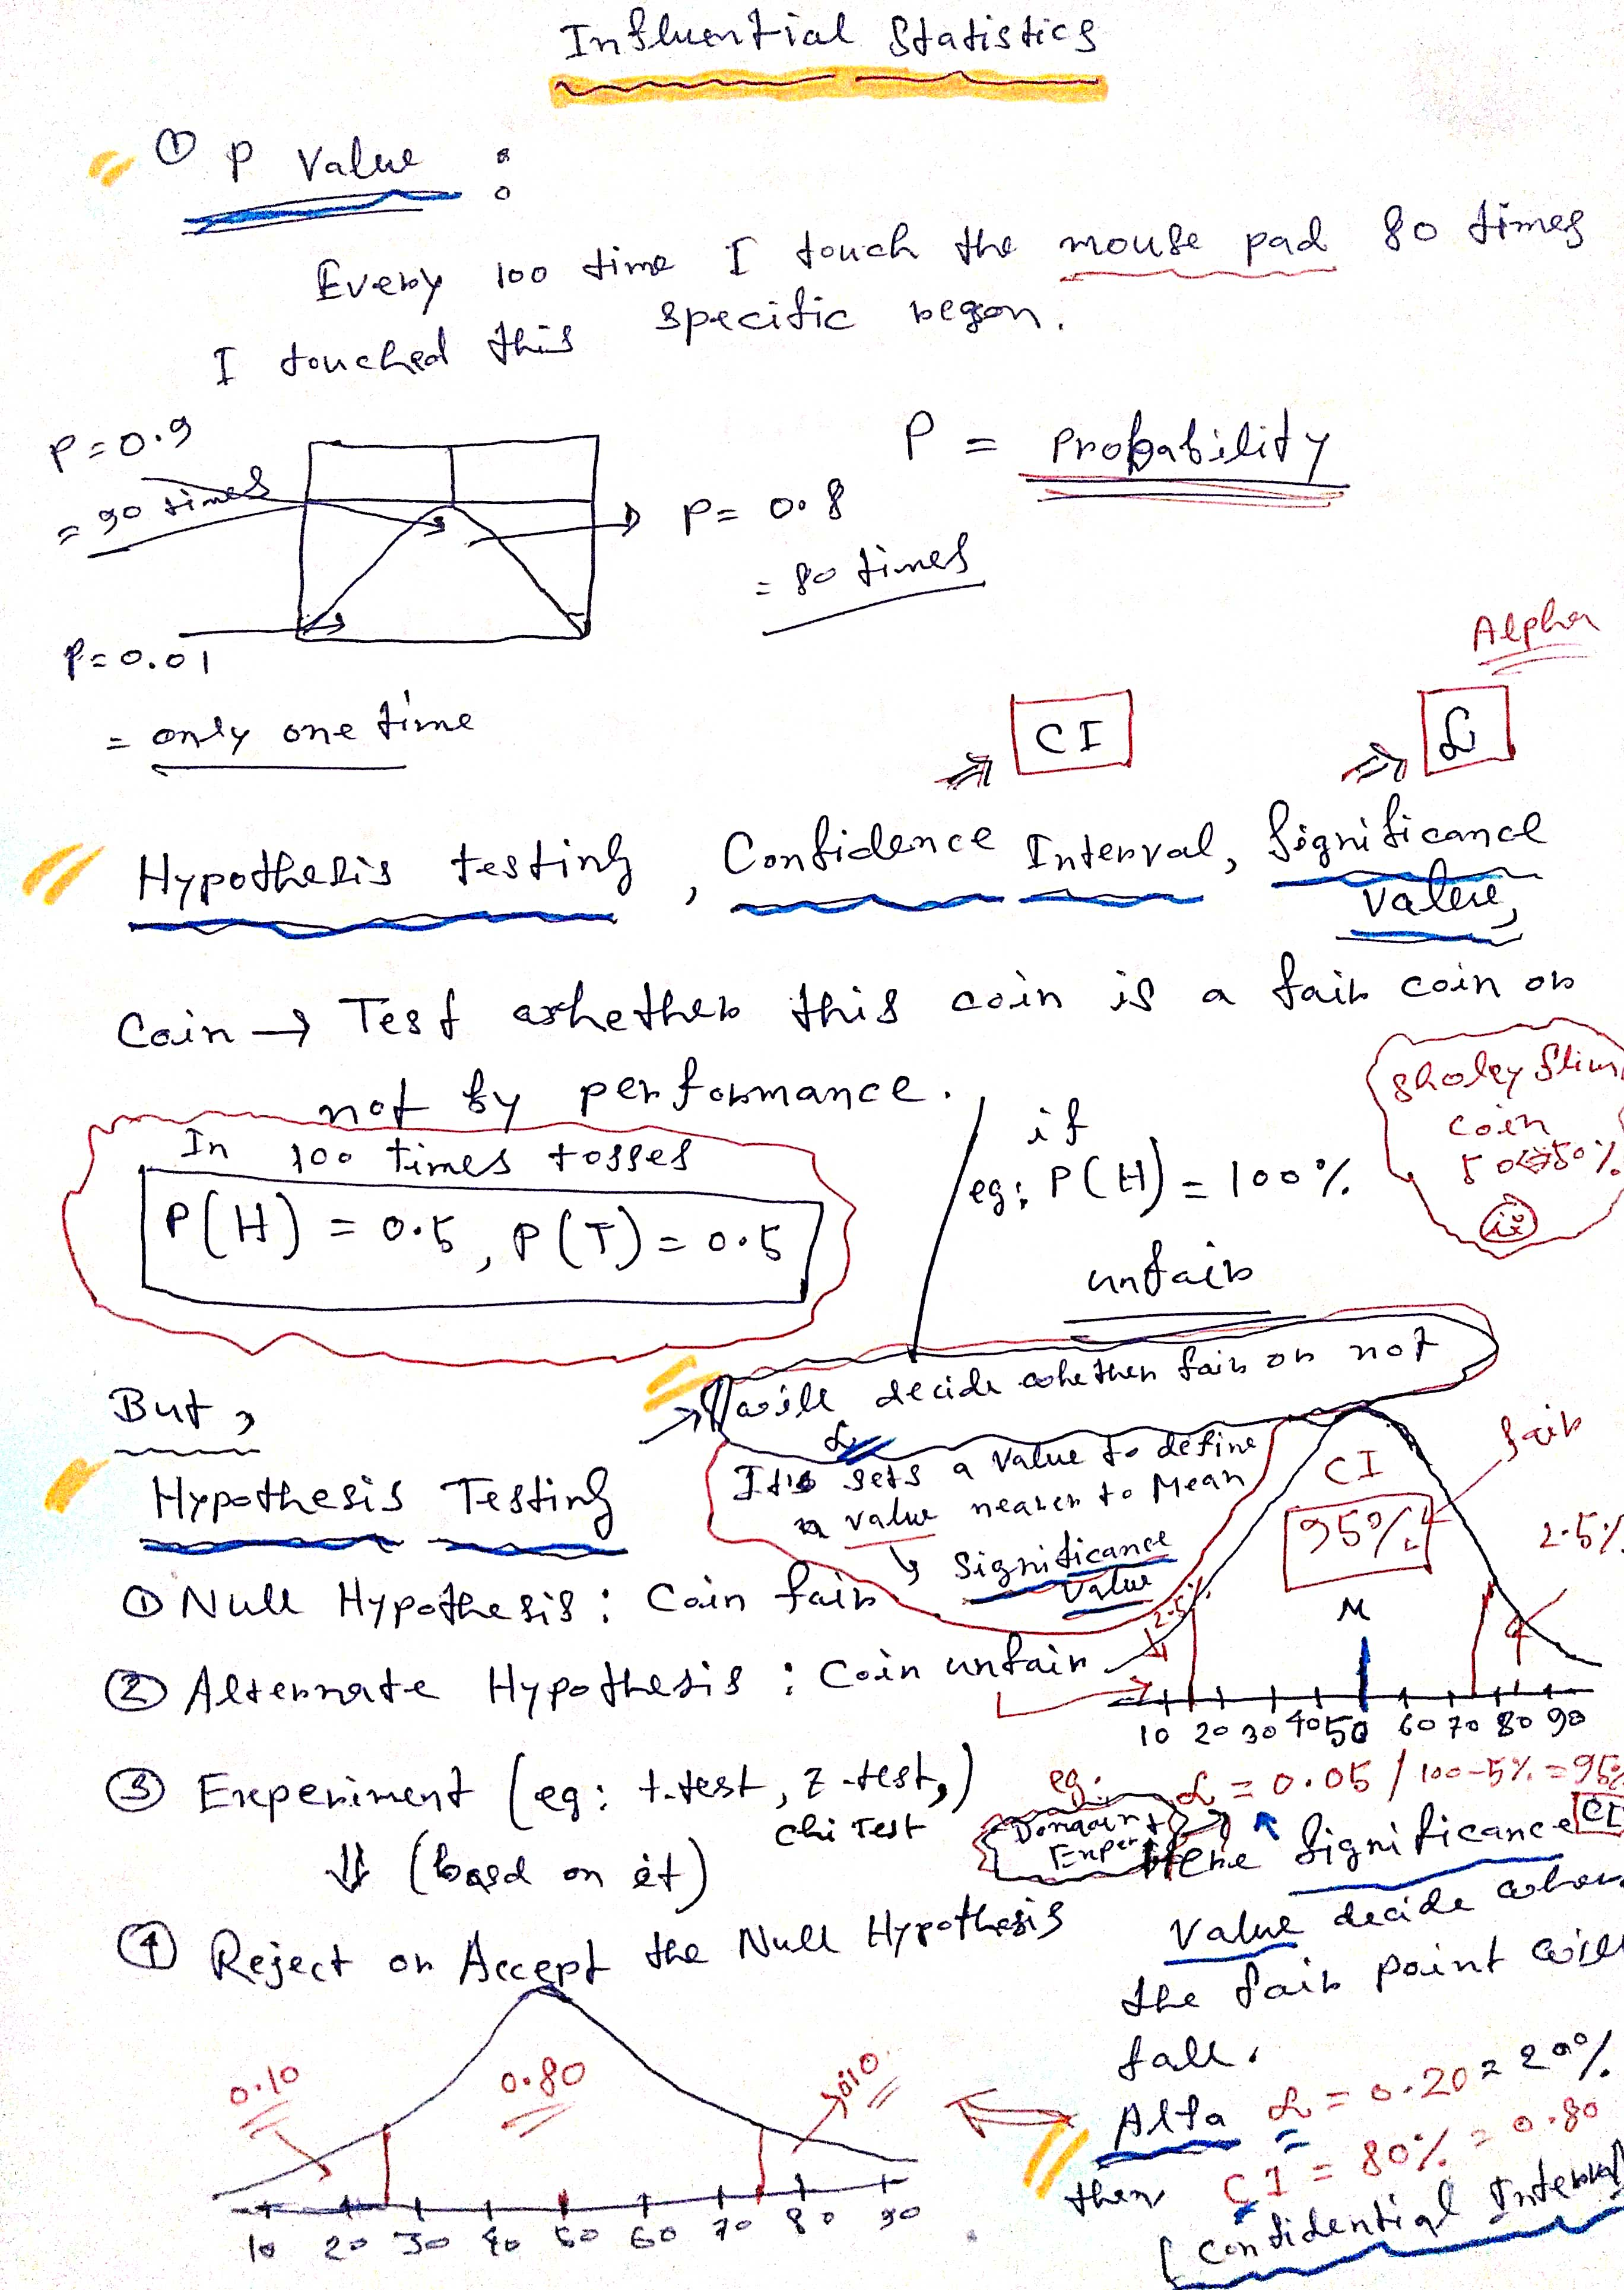 Influential Statistics
① P Value :
Every 100 time I touch the mouse pad 80 times
I touched this specific region.
P = 0.9
= 90 times
P = Probability
P = 0.8
= 80 times
P = 0.01
= only one time
Alpha
CI
α
Hypothesis testing, Confidence Interval, Significance
Value,
Coin → Test whether this coin is a fair coin or
not by performance.
In 100 times tosses
P(H) = 0.5, P(T) = 0.5
if
eg: P(H) = 100%
unfair
coin
will decide whether fair or not
But,
Hypothesis Testing
α
It's sets a value to define
a value nearer to Mean
↳ Significance
Value
CI
95%
fair
2.5%
2.5%
M
10 20 30 40 50 60 70 80 90
① Null Hypothesis : Coin fair
② Alternate Hypothesis : Coin unfair
③ Experiment (eg: t.test, z-test,)
Chi Test
⇓ (based on it)
④ Reject or Accept the Null Hypothesis
eg. α = 0.05 / 100-5% = 95%
CI
Domain
Expert
Here Significance
Value decide when
the fair point will
fall.
Alfa α = 0.20 = 20%
then CI = 80% = 0.80
[Confidential Interval]
0.10
0.80
0.10
10 20 30 40 50 60 70 80 90